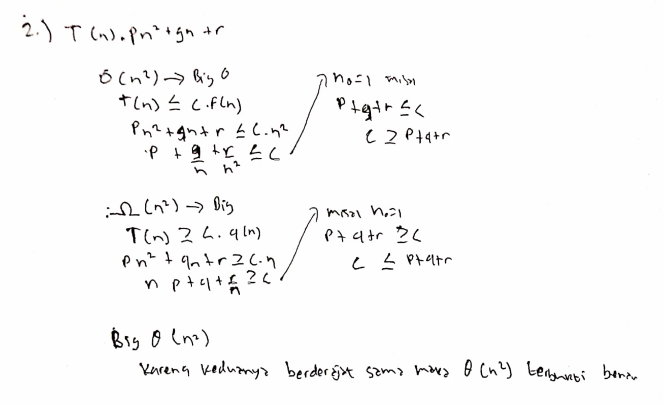 2.) T(n) = pn² + qn + r
O(n²) → Big O
T(n) ≤ c.f(n)
pn² + qn + r ≤ c.n²
p + q/n + r/n² ≤ c
n₀=1 misal
p+q+r ≤ c
c ≥ p+q+r
Ω(n²) → Big
T(n) ≥ c.g(n)
pn² + qn + r ≥ c.n
n p + q + r/n ≥ c
misal n₀=1
p+q+r ≥ c
c ≤ p+q+r
Big θ (n²)
Karena keduanya berderajat sama maka θ(n²) terbukti benar